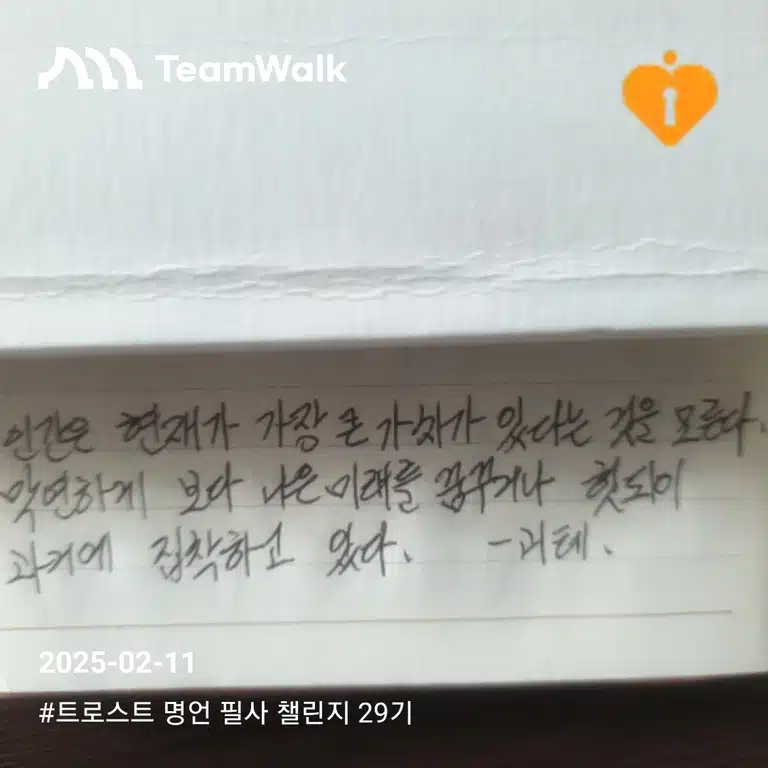 TeamWalk
인간은 현재가 가장 큰 가치가 있다는 것을 모른다.
막연하게 보다 나은 미래를 꿈꾸거나 헛되이
과거에 집착하고 있다. -괴테.
2025-02-11
#트로스트 명언 필사 챌린지 29기